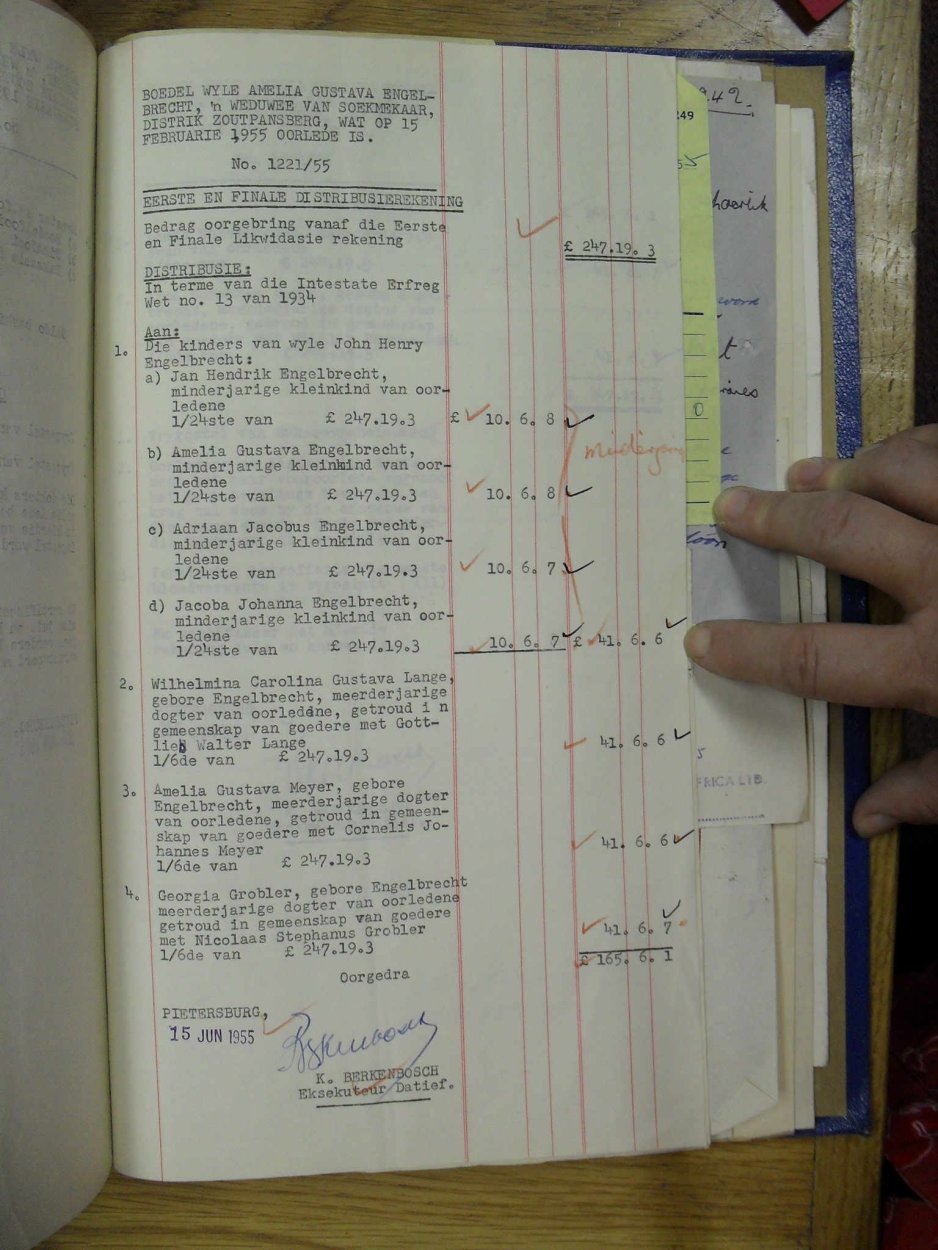 BOEDEL WYLE AMELIA GUSTAVA ENGEL-
BRECHT, 'n WEDUWEE VAN SOEKMEKAAR,
DISTRIK ZOUTPANSBERG, WAT OP 15
FEBRUARIE 1955 OORLEDE IS.
No. 1221/55
EERSTE EN FINALE DISTRIBUSIEREKENING
Bedrag oorgebring vanaf die Eerste
en Finale Likwidasie rekening £ 247.19. 3
DISTRIBUSIE:
In terme van die Intestate Erfreg
Wet no. 13 van 1934
Aan:
1. Die kinders van wyle John Henry
Engelbrecht:
a) Jan Hendrik Engelbrecht,
minderjarige kleinkind van oor-
ledene
1/24ste van £ 247.19.3 £ 10. 6. 8
b) Amelia Gustava Engelbrecht,
minderjarige kleinkind van oor-
ledene
1/24ste van £ 247.19.3 10. 6. 8
c) Adriaan Jacobus Engelbrecht,
minderjarige kleinkind van oor-
ledene
1/24ste van £ 247.19.3 10. 6. 7
d) Jacoba Johanna Engelbrecht,
minderjarige kleinkind van oor-
ledene
1/24ste van £ 247.19.3 10. 6. 7 £ 41. 6. 6
2. Wilhelmina Carolina Gustava Lange,
gebore Engelbrecht, meerderjarige
dogter van oorledene, getroud i n
gemeenskap van goedere met Gott-
lieb Walter Lange
1/6de van £ 247.19.3 41. 6. 6
3. Amelia Gustava Meyer, gebore
Engelbrecht, meerderjarige dogter
van oorledene, getroud in gemeen-
skap van goedere met Cornelis Jo-
hannes Meyer
1/6de van £ 247.19.3 41. 6. 6
4. Georgia Grobler, gebore Engelbrecht
meerderjarige dogter van oorledene
getroud in gemeenskap van goedere
met Nicolaas Stephanus Grobler
1/6de van £ 247.19.3 41. 6. 7
£ 165. 6. 1
Oorgedra
PIETERSBURG,
15 JUN 1955
K. BERKENBOSCH
Eksekuteur Datief.